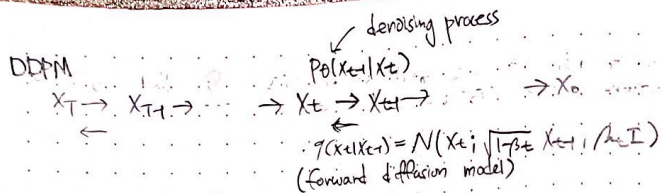 denoising process
DDPM
Pθ(Xt-1|Xt)
XT → XT-1 → ... → Xt → Xt-1 → → X0
q(Xt|Xt-1) = N(Xt; √1-βt Xt-1, βt I)
(forward diffusion model)